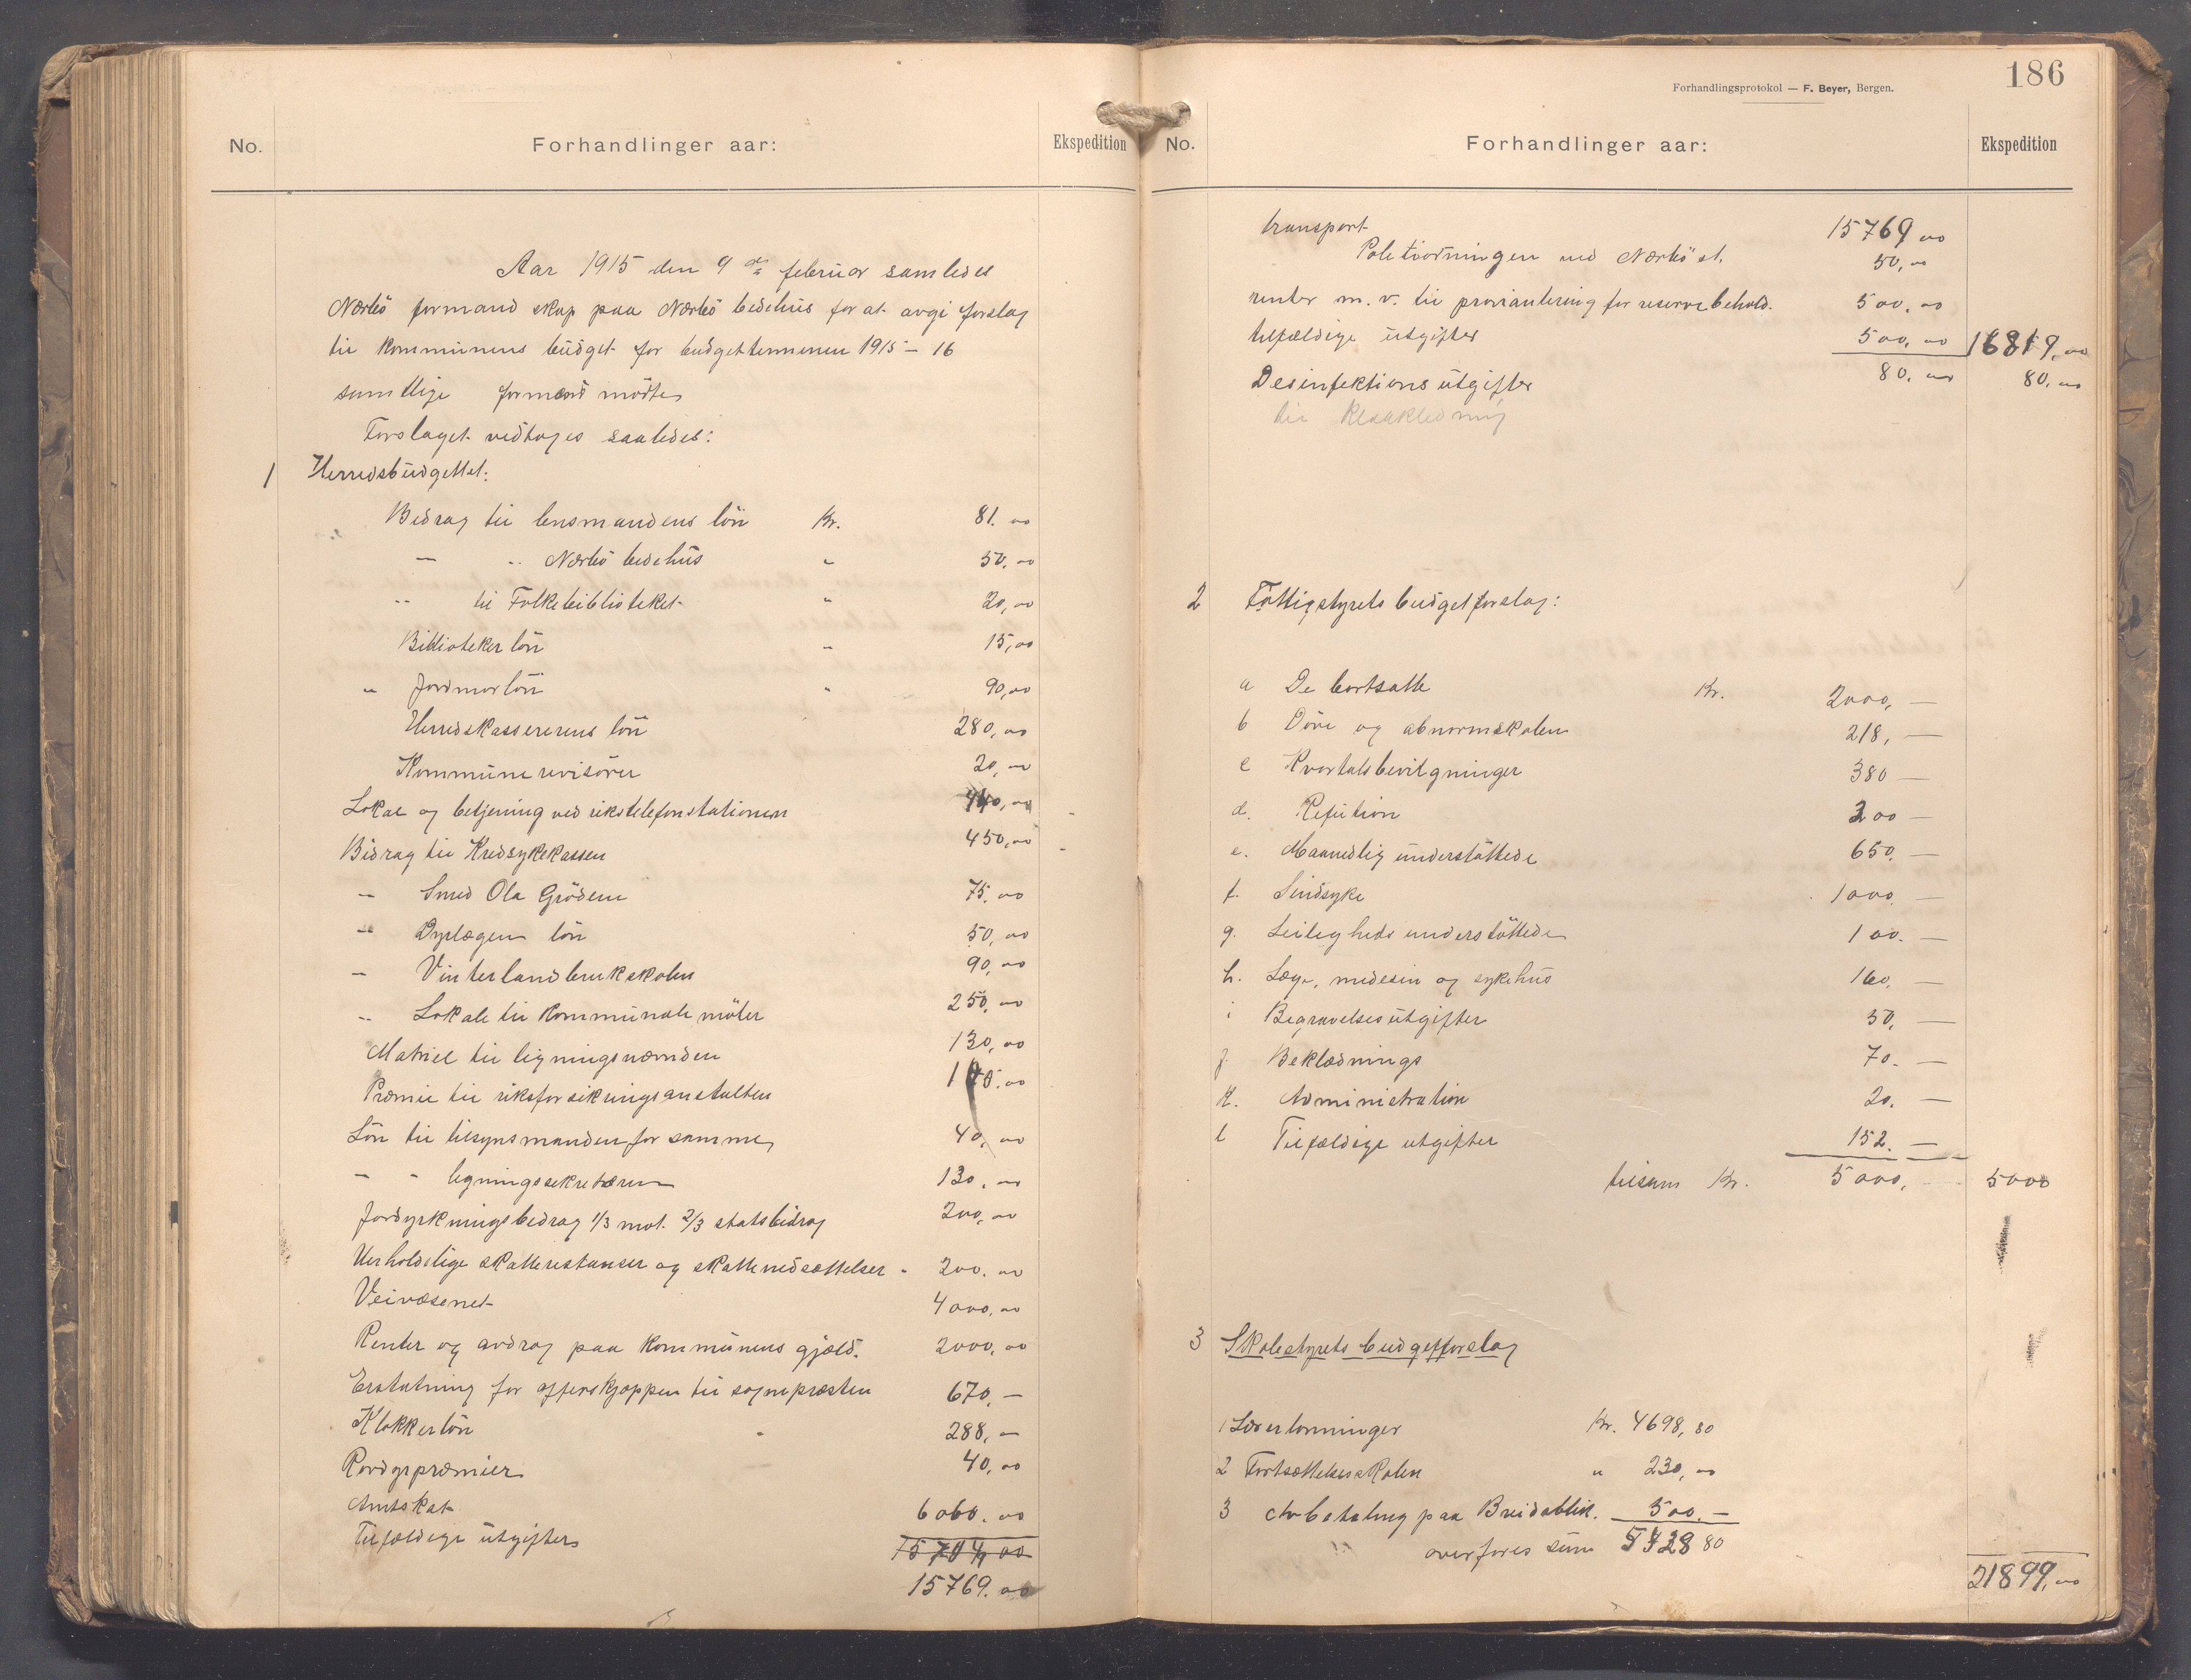 No. Forhandlinger aar: Ekspedition
Aar 1915 den 9de februar samledes
Nærbö formandskap paa Nærbö bedehus for at avgi forslag
til kommunens budget for budgetterminen 1915–16
samtlige formænd mötte,
Forslaget vedtoges saaledes:
1 Herredsbudgettet:
Bidrag til lensmandens lön Kr. 81.00
— " Nærbö bedehus " 50,00
" til Folkebiblioteket " 20,00
Biblioteker lön " 15,00
" Jordmor lön " 90,00
Herredskassererens lön 280,00
Kommune revisörer 20,00
Lokal og betjening ved rikstelefonstationen 440,00
Bidrag til Kredsykekassen 450,00
— Smed Ola Grödem 75,00
" Dyrlægen lön 50,00
— Vinterlandbrukskolen 90,00
" Lokale til kommunale möter 250,00
Matriel til ligningsnæmnden 130,00
Præmie til riksforsikringsanstalten 00
Lön til tilsynsmanden for samme, 40,00
— " ligningssekretæren 130,00
Jordyrkningsbidrag 1/3 mot 2/3 statsbidrag 200,00
Uerholdelige skatterestanser og skattenedsættelser " 200.00
Veivæsenet 4000,00
Renter og avdrag paa kommunens gjæld. 2000,00
Erstatning for offer til sognepræsten 670,—
Klokkerlön " 288,—
Rovdyrpræmier 40,00
Amtskat 6060.00
Tilfældige utgifter 15704,00
15769.00
186
Forhandlingsprotokol — F. Beyer, Bergen.
No. Forhandlinger aar: Ekspedition
transport 15769,00
Politiordningen ved Nærbö st. 50,00
renter m. v. til proviantering for reservebehold. 500,00
tilfældige utgifter 500,00 16819,00
Desinfektions utgifter 80,00 80,00
til kloakledning
2 Fattigstyrets budgetforslag:
a De bortsatte Kr. 2000,—
b Döve og abnormskolen 218,—
c Kvartalsbevilgninger 380—
d. Refution 200—
e. Maanedlig understöttede 650.—
f. Sindsyke 1000.—
g. Leilegheds understöttede 100.—
h. Læge, medesin og sykehus 160,—
i Begravelsesutgifter 50,—
j. Beklædnings 70.—
k. Administration 20.—
l Tilfældige utgifter 152.—
tilsam Kr. 5000,— 5000
3 Skolestyrets budgetforslag
1 Lærerlønninger Kr. 4698,80
2 Fortsættelsesskolen " 230,00
3 Avbetaling paa Breidablik. 500.—
overføres sum 5428 80
21899,00